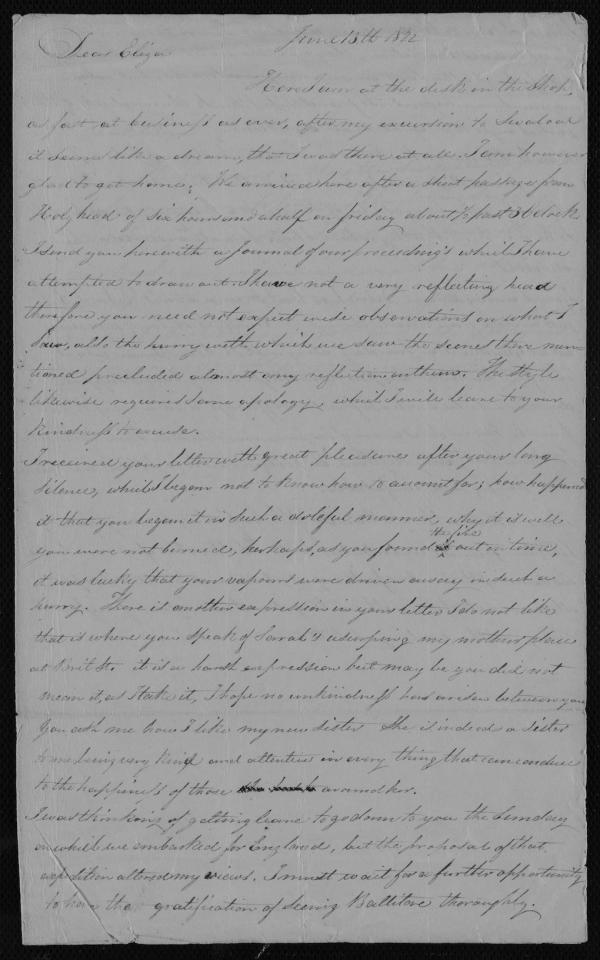 June 13th 18
Dear Eliza
Here I am at the desk in the Shop,
as fast at business as ever, after my excursion to
it seems like a dream, that I was there at all. I am however
glad to get home; We arrived here after a short passage from
Holyhead of six hours and a half on friday about ½ past 3 O'clock
I send you herewith a Journal of our proceeding's which I have
attempted to draw out. I have not a very reflecting head
therefore you need not expect wise observations on what I
saw, also the hurry with which we saw the scenes there men-
tioned precluded almost any reflection on them. The style
likewise requires some apology, which I will leave to your
kindness to excuse.
I received your letter with great pleasure after your long
silence, which I began not to know how to account for; how happened
it that you began it in such a doleful manner, why it is well
you were not burned, perhaps, as you found the fire out in time,
it was lucky that your vapours were driven away in such a
hurry. There is another expression in your letter I do not like
that is where you speak of Sarah's usurping my mothers place
at St. it is a harsh expression but may be you did not
mean it, as I take it, I hope no unkindness has arisen between you
You ask me how I like my new sister She is indeed a sister
to me being very kind and attentive in every thing that can conduce
to the happiness of those around her.
I was thinking of getting leave to go down to you the Sunday
on which we embarked for England, but the proposal of that
expedition altered my views. I must wait for a further opportunity
to have the gratification of seeing Ballitore thoroughly.